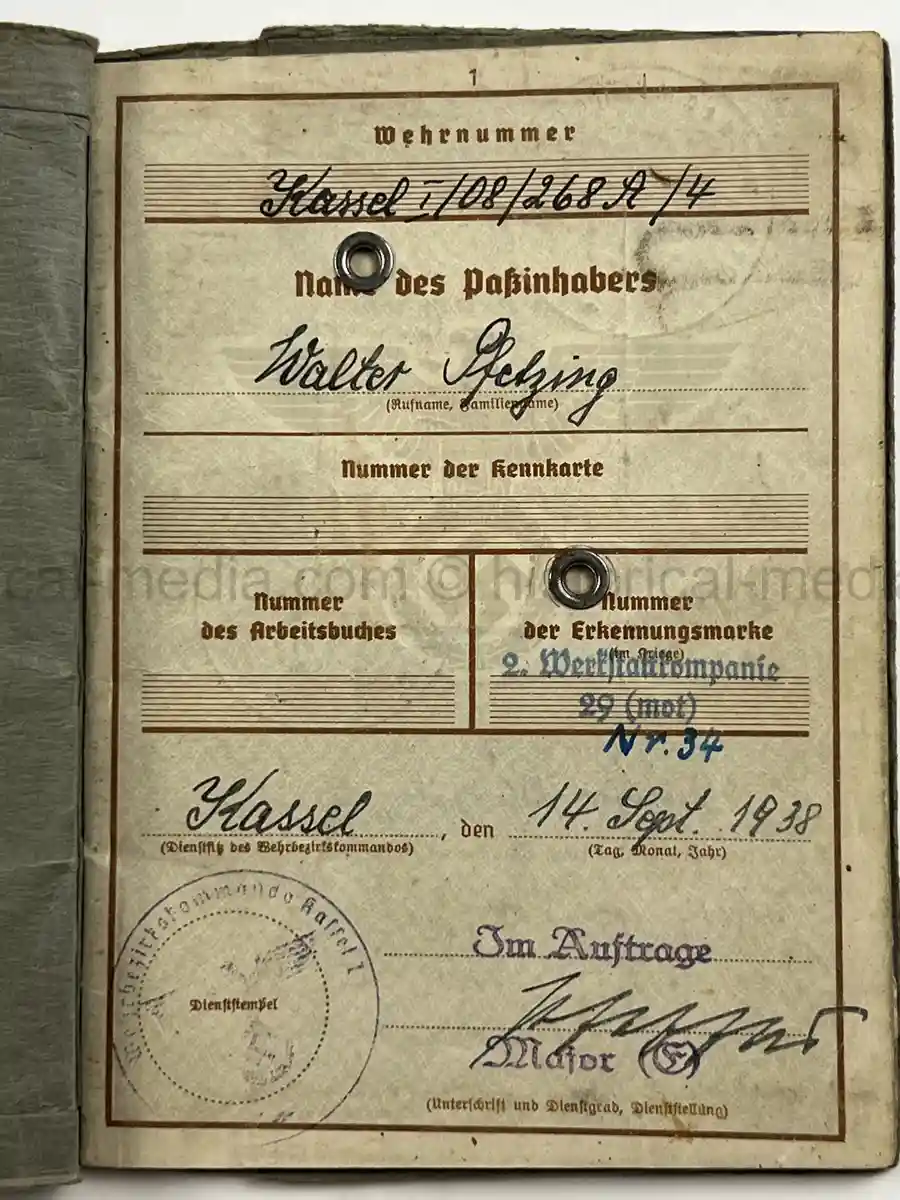 1
Wehrnummer
Kassel I/08/268 A/4
Name des Paßinhabers
Walter Pfetzing
(Rufname, Familienname)
Nummer der Kennkarte
cal-media.com © historical-med
Nummer
des Arbeitsbuches
Nummer
der Erkennungsmarke
(im Kriege)
2. Werkstattkompanie
29 (mot)
Nr. 34
Kassel, den 14. Sept. 1938
(Dienstsitz des Wehrbezirkskommandos) (Tag, Monat, Jahr)
Wehrbezirkskommando Kassel I
Dienststempel
Im Auftrage
Major (E)
(Unterschrift und Dienstgrad, Dienststellung)